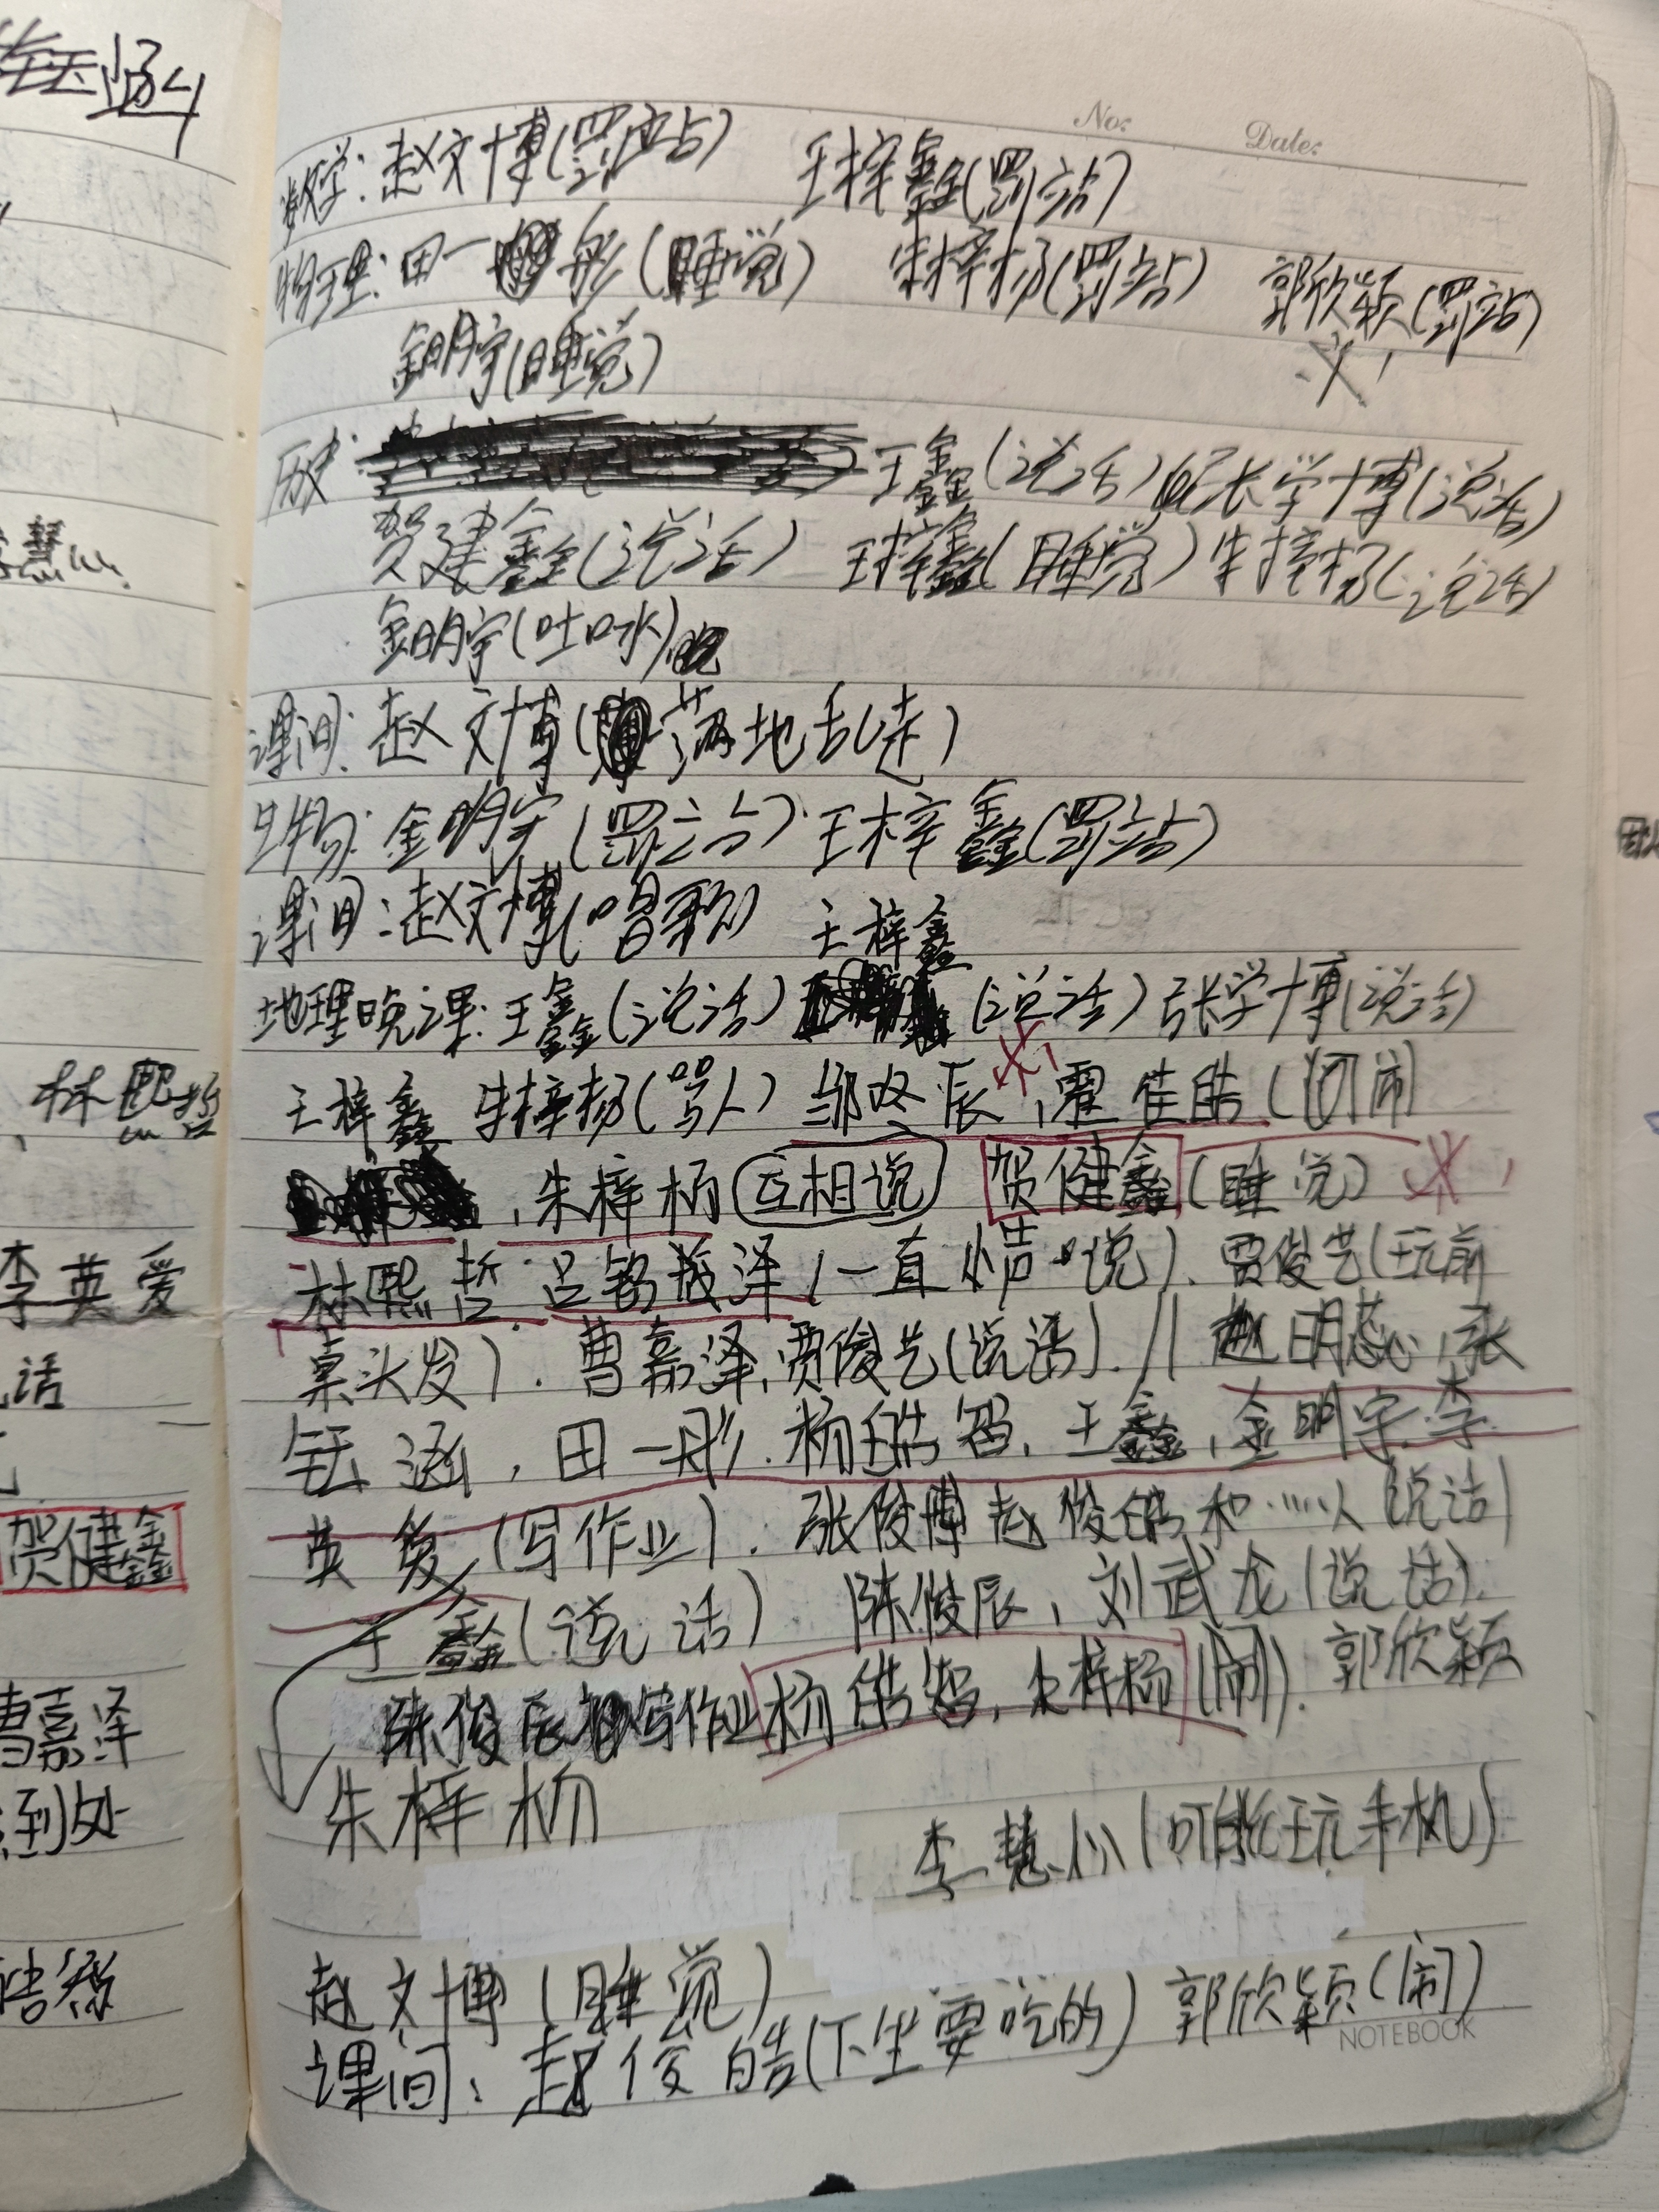 No: Date:
数学:赵文博(罚站) 王梓鑫(罚站)
物理:田一彤(睡觉) 朱梓杨(罚站) 郭欣颖(罚站)
金明宇(睡觉)
历史: 王鑫(说话) 张学博(说话)
贺建鑫(说话) 王梓鑫(睡觉) 朱梓杨(说话)
金明宇(吐口水)
课间:赵文博(满地乱走)
生物:金明宇(罚站) 王梓鑫(罚站)
课间:赵文博(唱歌) 王梓鑫
地理晚课:王鑫(说话) (说话) 张学博(说话)
王梓鑫 朱梓杨(骂人) 邹 辰,霍佳皓(闹
,朱梓杨 互相说 贺健鑫(睡觉)
林熙哲.吕铭茂泽(一直 说).贾俊艺(玩前
桌头发).曹嘉泽,贾俊艺(说话).// 赵明蕊,张
钰涵,田一彤.杨皓智,王鑫,金明宇.李
英爱(写作业).张俊博赵俊皓和……人(说话)
王鑫(说话) 陈俊辰,刘武龙(说话).
陈俊辰 写作业 杨皓智,朱梓杨(闹).郭欣颖
朱梓杨
李慧 (可能玩手机)
赵文博(睡觉)
课间:赵俊皓(下坐要吃的) 郭欣颖(闹)
NOTEBOOK
林熙哲
李英爱
话
贺健鑫
曹嘉泽
到处